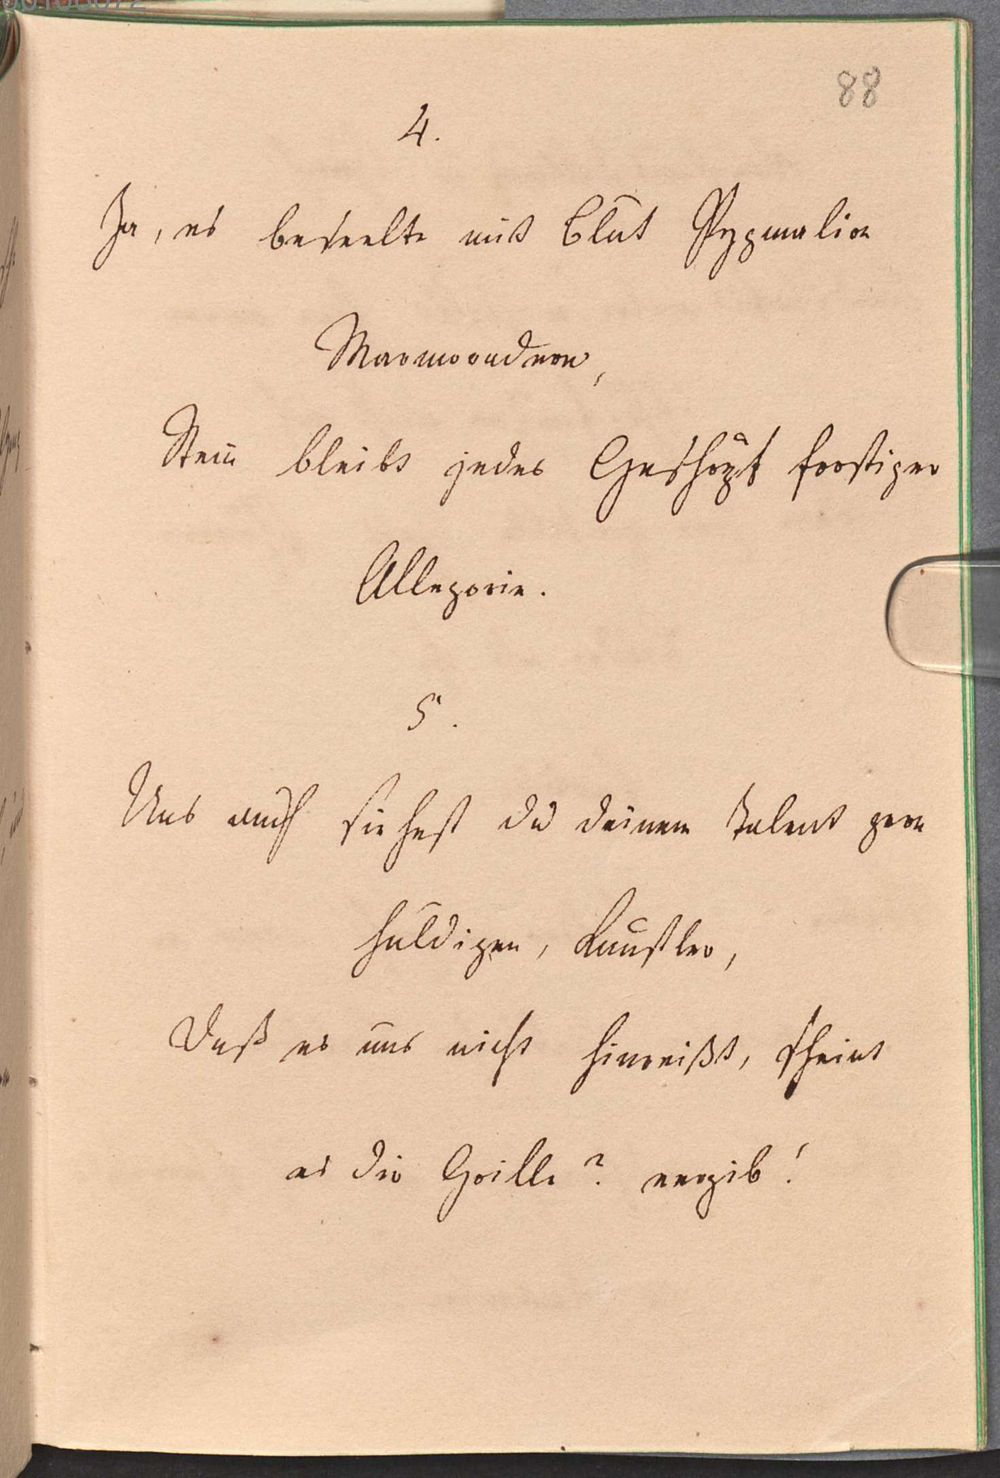 88
4.
Ja, es beseelte mit Blut Pygmalion
Marmoradern,
Stein bleibt jedes Geschöpf frostiger
Allegorie.
5.
Uns auch siehest du deinem Talent gern
huldigen, Künstler,
Daß es uns nicht hinreißt, scheint
es dir Grille? vergib!